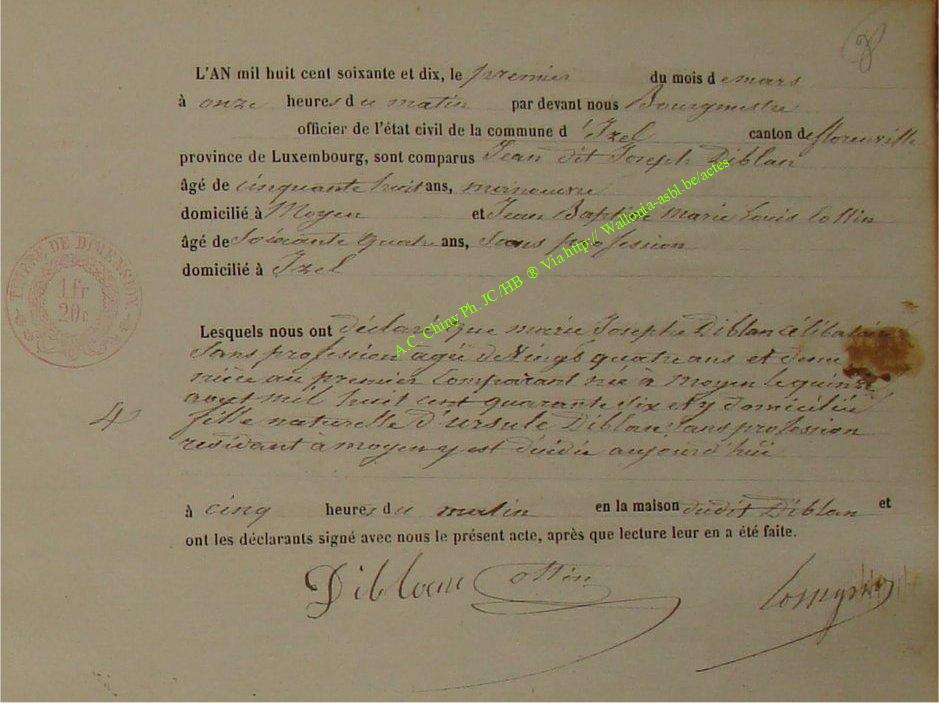 8
L'AN mil huit cent soixante et dix, le premier du mois de mars
à onze heures du matin par devant nous Bourgmestre
officier de l'état civil de la commune d'Izel canton de florenville
province de Luxembourg, sont comparus Jean dit Joseph Diblan
âgé de cinquante huit ans, manoeuvre
domicilié à Moyen et Jean Baptiste Marie Louis Collin
âgé de Soixante quatre ans, Sans profession
domicilié à Izel
TIMBRE DE DIMENSION
1 fr
20 c
A.C. Chiny Ph. JC/HB ® Via http:// Wallonia-asbl.be/actes
Lesquels nous ont déclaré que marie Josephe Diblan célibataire
Sans profession agée de Vingt quatre ans et demi
nièce au premier Comparant née à moyen le quinze
aout mil huit cent quarante six et y domiciliée
4
fille naturelle d'ursule Diblan, Sans profession
residant a moyen y est décédée aujourd'hui
à cinq heures du matin en la maison dudit Diblan et
ont les déclarants signé avec nous le présent acte, après que lecture leur en a été faite.
Diblan Collin